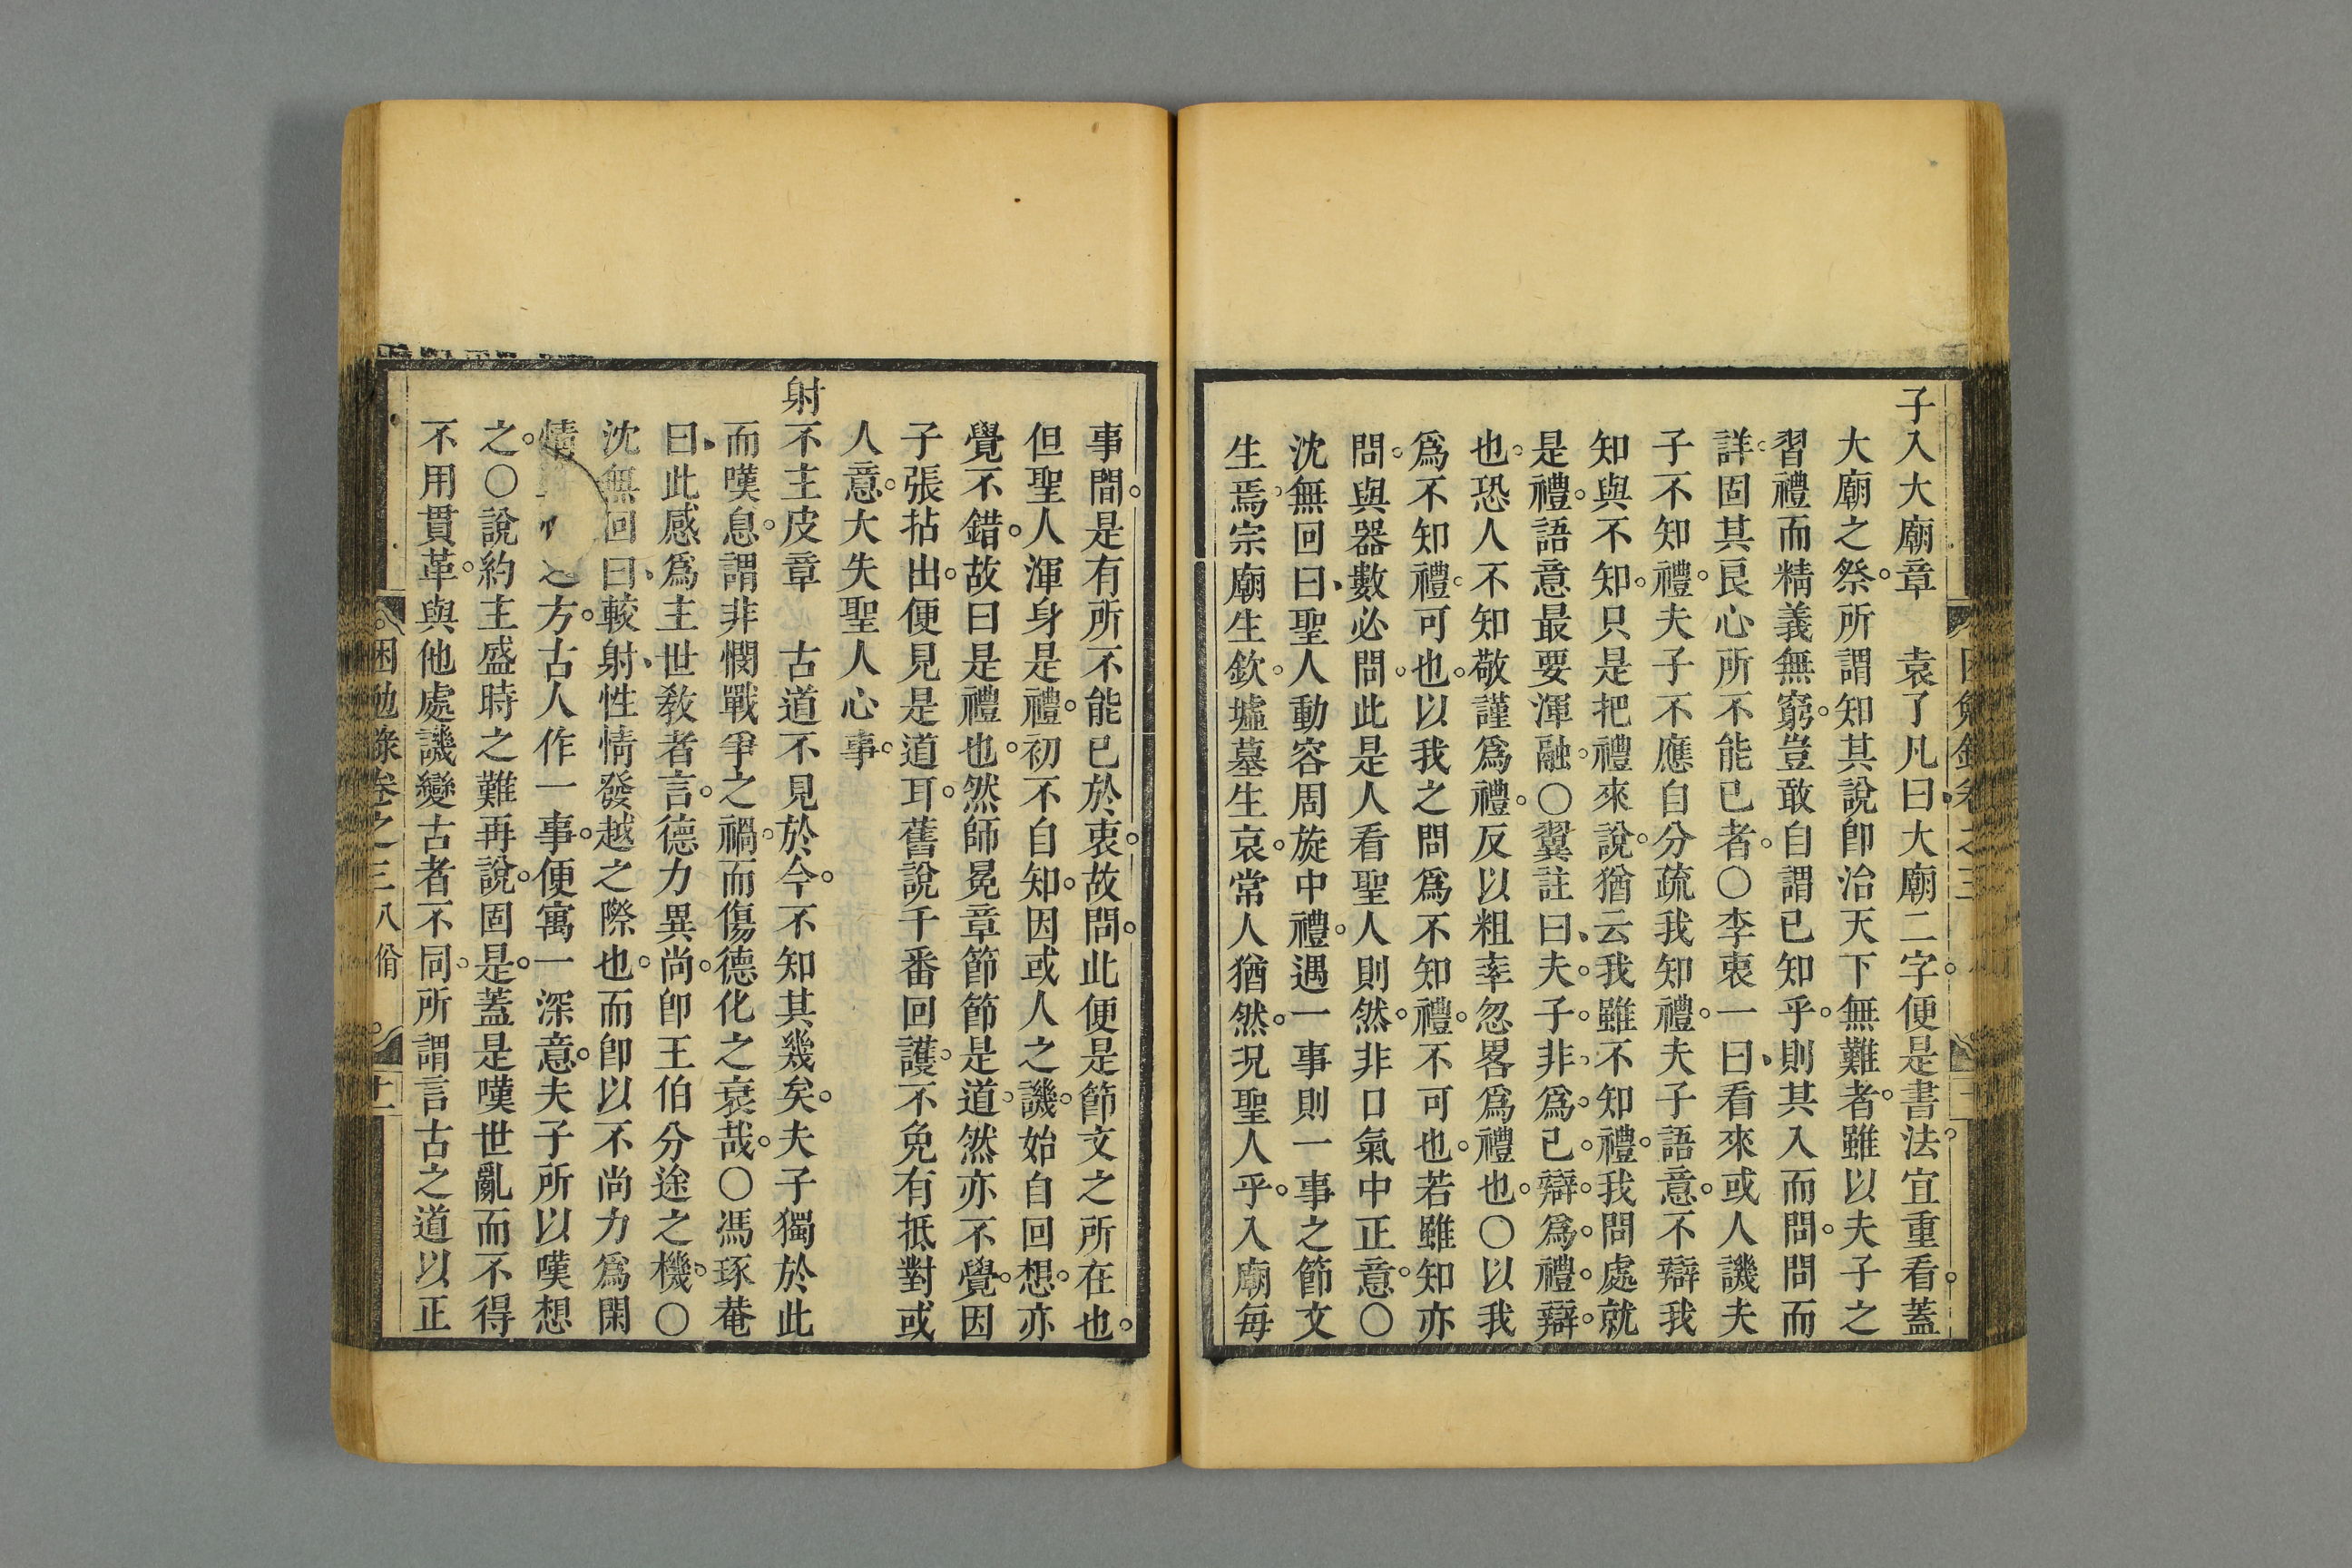 子入大廟章　袁了凡曰、大廟二字。便是書法。宜重看。蓋
大廟之祭。所謂知其說卽治天下無難者。雖以夫子之
習禮而精義無窮。豈敢自謂已知乎。則其入而問。問而
詳。固其良心所不能已者。○李衷一曰、看來或人譏夫
子不知禮。夫子不應自分疏我知禮。夫子語意。不辯我
知與不知。只是把禮來說。猶云我雖不知禮。我問處就
是禮。語意最要渾融。○翼註曰、夫子。非爲己辯。爲禮辯。
也。恐人不知敬謹爲禮。反以粗率忽畧爲禮也。○以我
爲不知禮。可也。以我之問爲不知禮。不可也。若雖知亦
問。與器數必問。此是人看聖人則然。非口氣中正意。○
沈無回曰、聖人動容周旋中禮。遇一事則一事之節文
生焉。宗廟生欽。墟墓生哀。常人猶然。况聖人乎。入廟每
事間。是有所不能已於衷。故問。此便是節文之所在也。
但聖人渾身是禮。初不自知。因或人之譏。始自回想。亦
覺不錯。故曰是禮也。然師冕章節節是道。然亦不覺。因
子張拈出。便見是道耳。舊說千番回護。不免有抵對或
人意。大失聖人心事。
射不主皮章　古道不見於今。不知其幾矣。夫子獨於此
而嘆息。謂非憫戰爭之禍。而傷德化之衰哉。○馮琢菴
曰、此感爲主世教者言。德力異尚。卽王伯分途之機。○
沈無回曰、較射、性情發越之際也。而卽以不尚力爲閑
情之方。古人作一事。便寓一深意。夫子所以嘆想
之。○說約主盛時之難再說。固是。蓋是嘆世亂而不得
不用貫革。與他處譏變古者不同。所謂言古之道以正
困勉錄卷之三八佾　十一